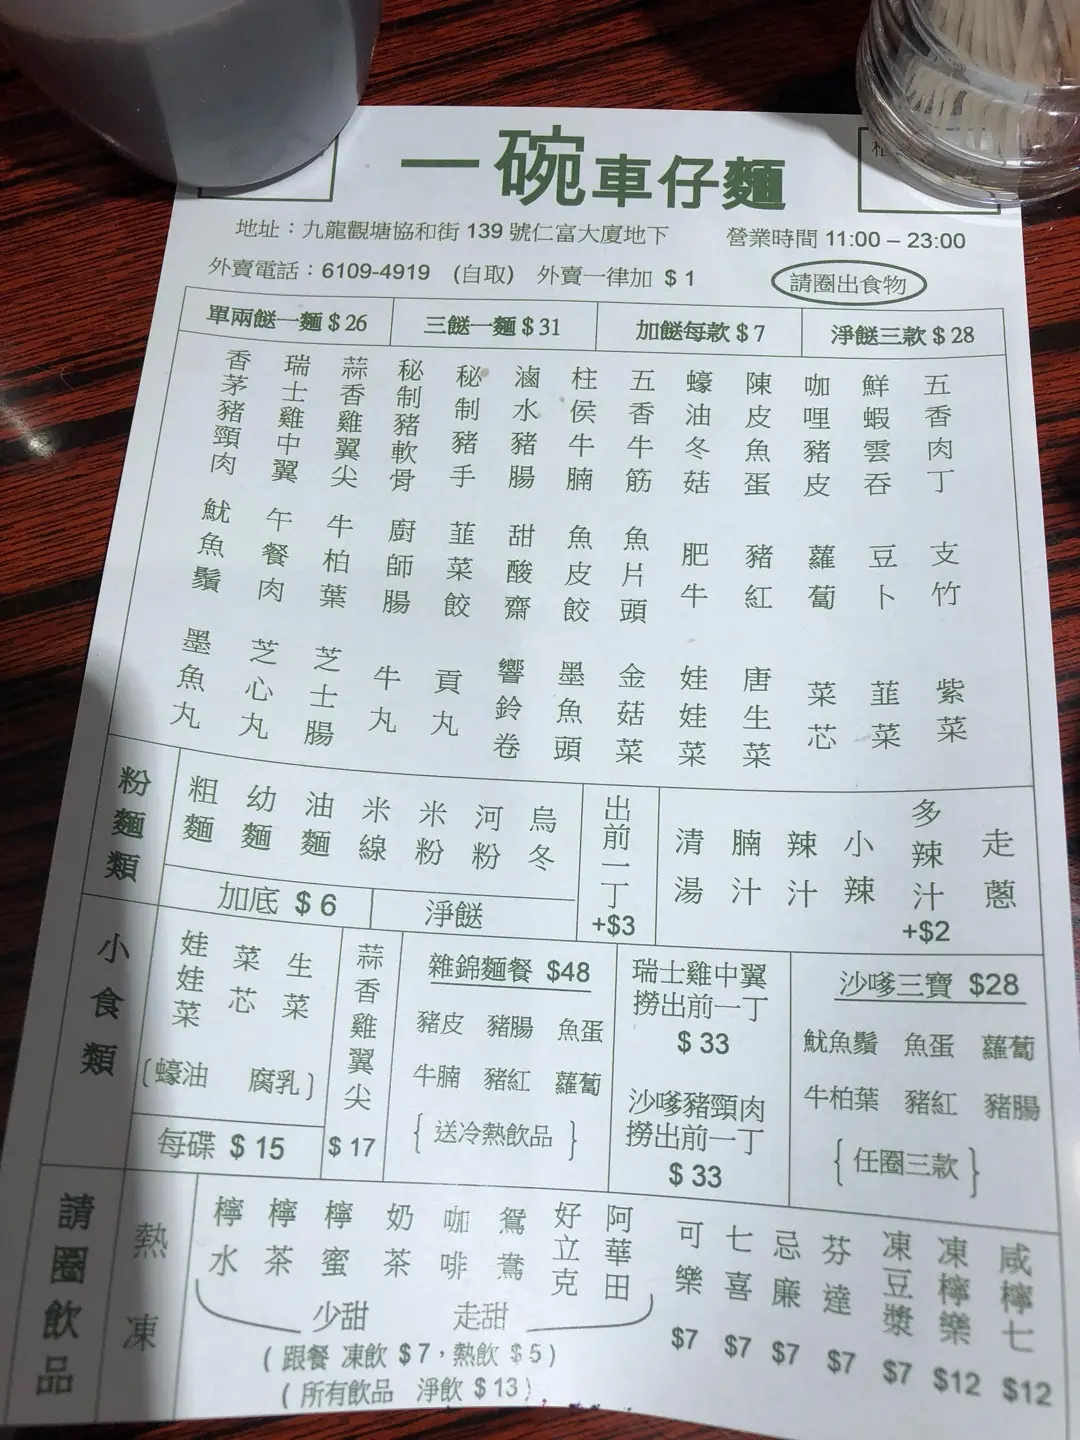 一碗車仔麵
地址：九龍觀塘協和街 139 號仁富大廈地下 營業時間 11:00 – 23:00
外賣電話：6109-4919 (自取) 外賣一律加 $ 1 請圈出食物
單兩餸一麵 $ 26 三餸一麵 $ 31 加餸每款 $ 7 淨餸三款 $ 28
香茅豬頸肉 瑞士雞中翼 蒜香雞翼尖 秘制豬軟骨 秘制豬手 滷水豬腸 柱侯牛腩 五香牛筋 蠔油冬菇 陳皮魚蛋 咖哩豬皮 鮮蝦雲吞 五香肉丁
魷魚鬚 午餐肉 牛柏葉 廚師腸 韮菜餃 甜酸齋 魚皮餃 魚片頭 肥牛 豬紅 蘿蔔 豆卜 支竹
墨魚丸 芝心丸 芝士腸 牛丸 貢丸 響鈴卷 墨魚頭 金菇菜 娃娃菜 唐生菜 菜芯 韮菜 紫菜
粉麵類
粗麵 幼麵 油麵 米線 米粉 河粉 烏冬
加底 $ 6 淨餸
出前一丁 +$3
清湯 腩汁 辣汁 小辣 多辣汁 +$2 走蔥
小食類
娃娃菜 菜芯 生菜
(蠔油 腐乳)
每碟 $ 15
蒜香雞翼尖 $ 17
雜錦麵餐 $48
豬皮 豬腸 魚蛋
牛腩 豬紅 蘿蔔
{ 送冷熱飲品 }
瑞士雞中翼
撈出前一丁
$ 33
沙嗲豬頸肉
撈出前一丁
$ 33
沙嗲三寶 $28
魷魚鬚 魚蛋 蘿蔔
牛柏葉 豬紅 豬腸
{ 任圈三款 }
請圈飲品
熱 凍
檸水 檸茶 檸蜜 奶茶 咖啡 鴛鴦 好立克 阿華田
少甜 走甜
( 跟餐 凍飲 $ 7，熱飲 $ 5 )
( 所有飲品 淨飲 $ 13 )
可樂 $7 七喜 $7 忌廉 $7 芬達 $7 凍豆漿 $7 凍檸樂 $12 咸檸七 $12